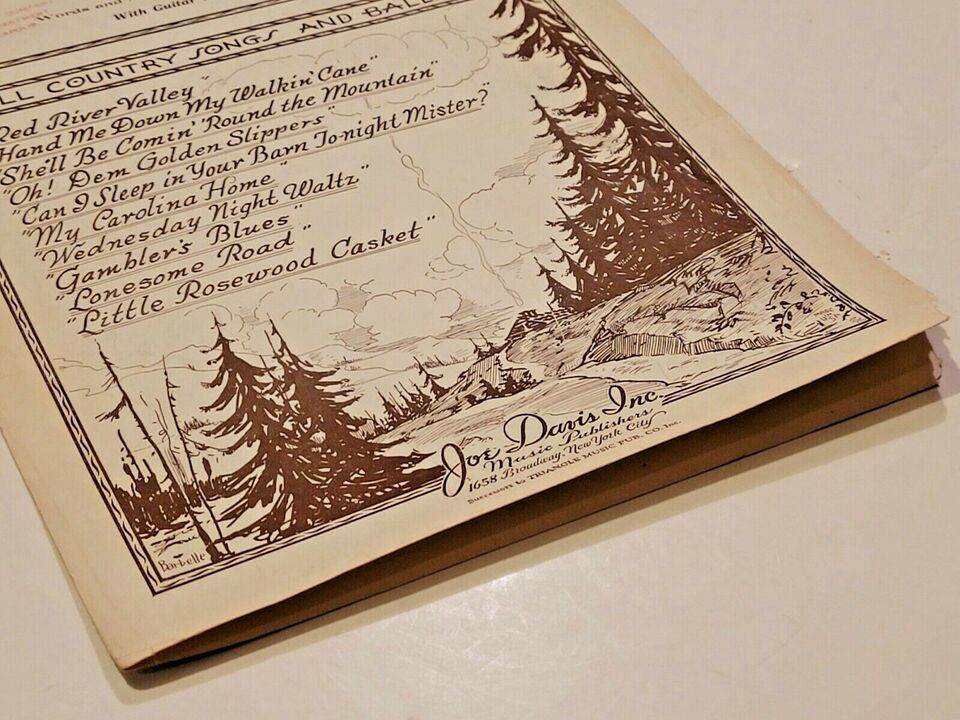 Words and
With Guitar
LL COUNTRY SONGS AND BALL
Red River Valley"
Hand Me Down My Walkin' Cane"
"She'll Be Comin' 'Round the Mountain"
"Oh! Dem Golden Slippers"
"Can I Sleep in Your Barn To-night Mister?"
"My Carolina Home"
"Wednesday Night Waltz"
"Gambler's Blues"
"Lonesome Road"
"Little Rosewood Casket"
Joe Davis Inc.
Music Publishers
1658 Broadway, New York City
Successors to TRIANGLE MUSIC PUB. CO. Inc.
Barbelle